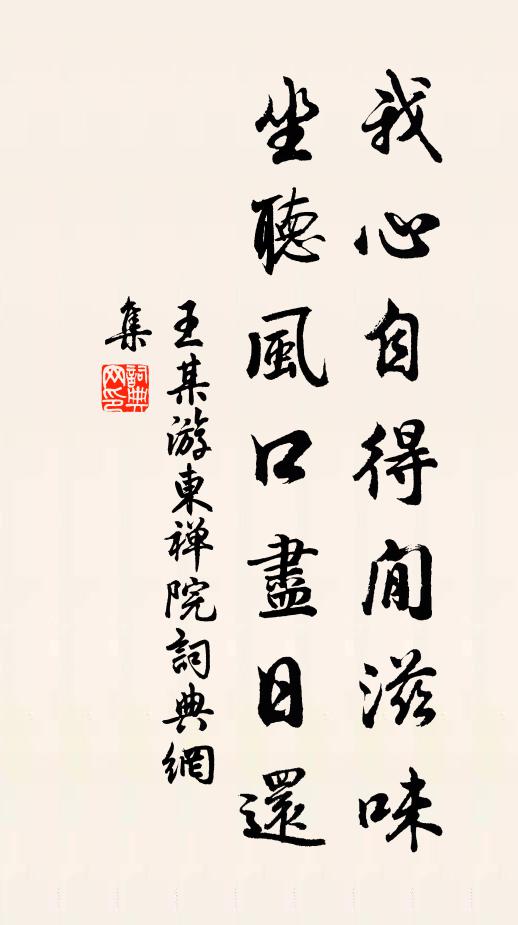 我心自得闲滋味
坐聽風口盡日還
王某游東禅院詞典網
集
詞典
网印